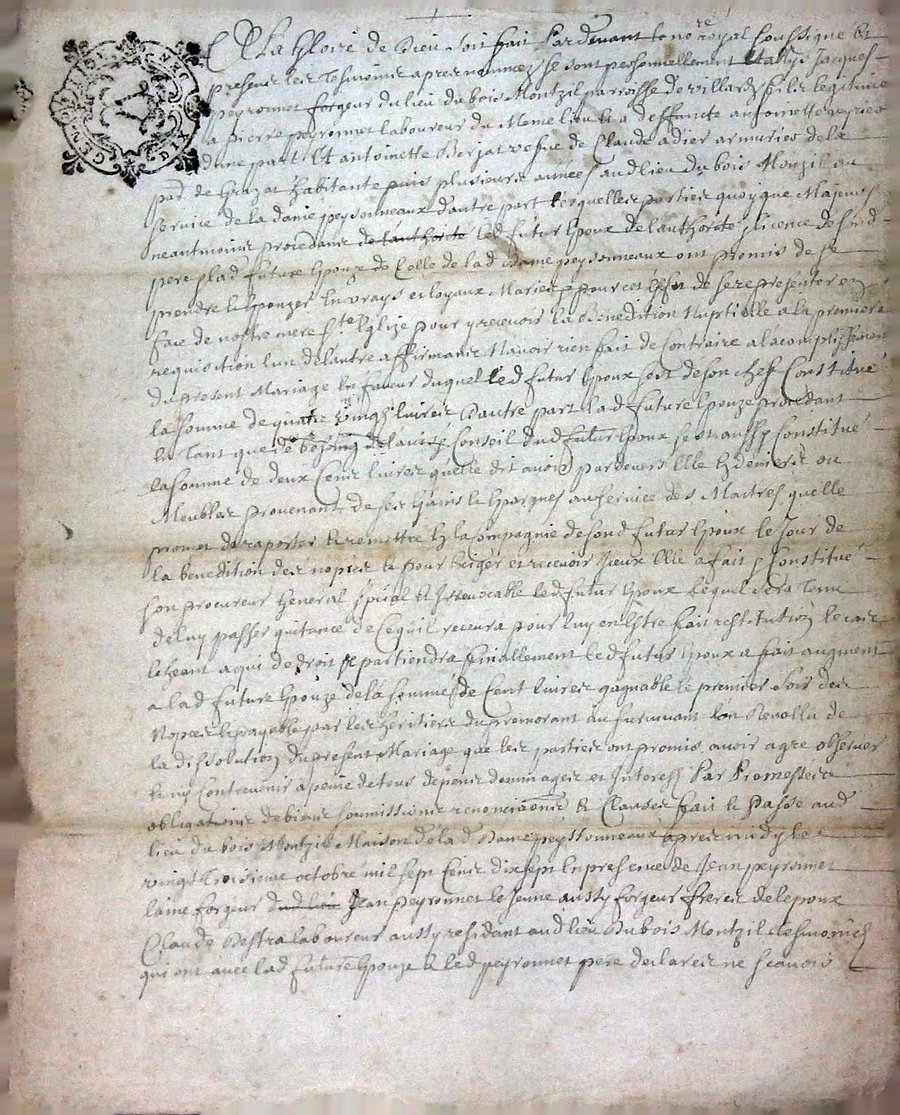 GEN
DIX DEN
A La gloire de Dieu soit fait Pardevant le no.re royal soussigne Et
present les tesmoins apres nommez se sont personnellement Establys Jacques
peyronnet forgeur du lieu du bois Montzil parroisse de villard fils legitime
a pierre peyronnet laboureur du meme lieu & a deffuncte anthoinette
dune part Et antoinette Berjat vefve de Claude adier armurier de la
de habitante puis plusieurs années aud lieu du bois Monzil au
service de la dame peyssonneaux dautre part lesquelles parties quoyque Majeurs
neantmoins procedans de lauthorité led futur Epoux de lauthorité & licence de sond
pere & lad future Epouze de Celle de lad dame peyssonneaux ont promis de se
prendre & Epouzer En vrays et loyaux Maries & pour cet effet de se representer en
face de nostre mere S.te Eglize pour y recevoir la Benediction Nuptielle a la premiere
requisition lun de lautre affirmant Navoir rien fait de Contraire a lacomplissement
du present Mariage En faveur duquel led futur Epoux sest de son chef Constitué
la somme de quatre vingt livres Dautre part lad future Epouze procedant
En Tant que de besoing de lavis & Conseil dud futur Epoux sest aussy Constitué
la somme de deux Cens livres quelle dit avoir pardevers Elle En deniers ou
Meubles provenant de ses Gains & Epargnes au service des Maitres quelle
promet de raporter & remettre En la Compagnie de sond futur Epoux le Jour de
la benediction des nopces & pour Exiger et recevoir Iceux Elle a fait & Constitué
son procureur General special & Irrevocable led futur Epoux Lequel sera Tenu
de luy passer quitance de Cequil recevra pour luy en Estre fait restitution le cas
Echeant a qui de droit partiendra finallement led futur Epoux a fait augment
a lad future Epouze de la somme de Cent livres gagnable le premier soir des
Nopces & payable par les heritiers du premorant au survivant lan Revollu de
la dissolution du present Mariage que les parties ont promis avoir agre observer
& ny Contrevenir a peine de tous depens dommages et Interest Par Promesses
obligations de biens soumissions renonciations & Clauses fait & Passé aud
lieu du bois Montzil Maison de lad Dame peyssonneaux apres midy le
vingt Troisieme octobre mil sept Cens dix sept En presence de Jean peyronnet
laine forgeur dud lieu Jean peyronnet le Jeune aussy forgeur freres de lepoux
Claude laboureur aussy residant aud lieu du bois Montzil tesmoins
qui ont avec lad future Epouze & led peyronnet pere declarés ne scavoir